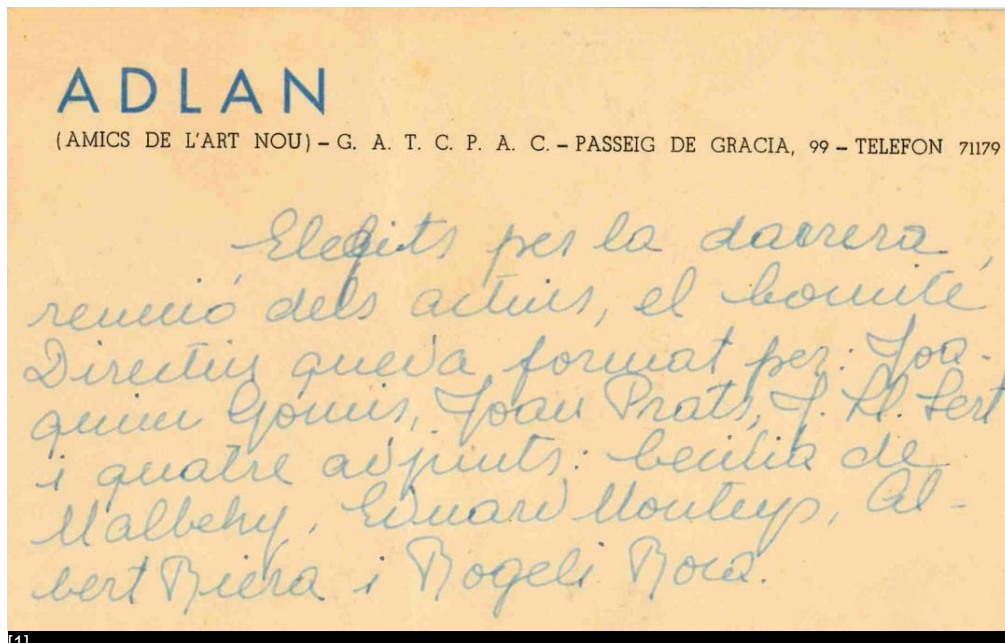 ADLAN
(AMICS DE L'ART NOU) – G. A. T. C. P. A. C. – PASSEIG DE GRACIA, 99 – TELEFON 71179
Elegits per la darrera
reunió dels actius, el Comité
Directiu queda format per: Joa-
quim Gomis, Joan Prats, J. Ll. Sert
i quatre adjunts: Cecilia de
Malbehy, Eduard Monteys, Al-
bert Riera i Rogeli Roca.
[1]